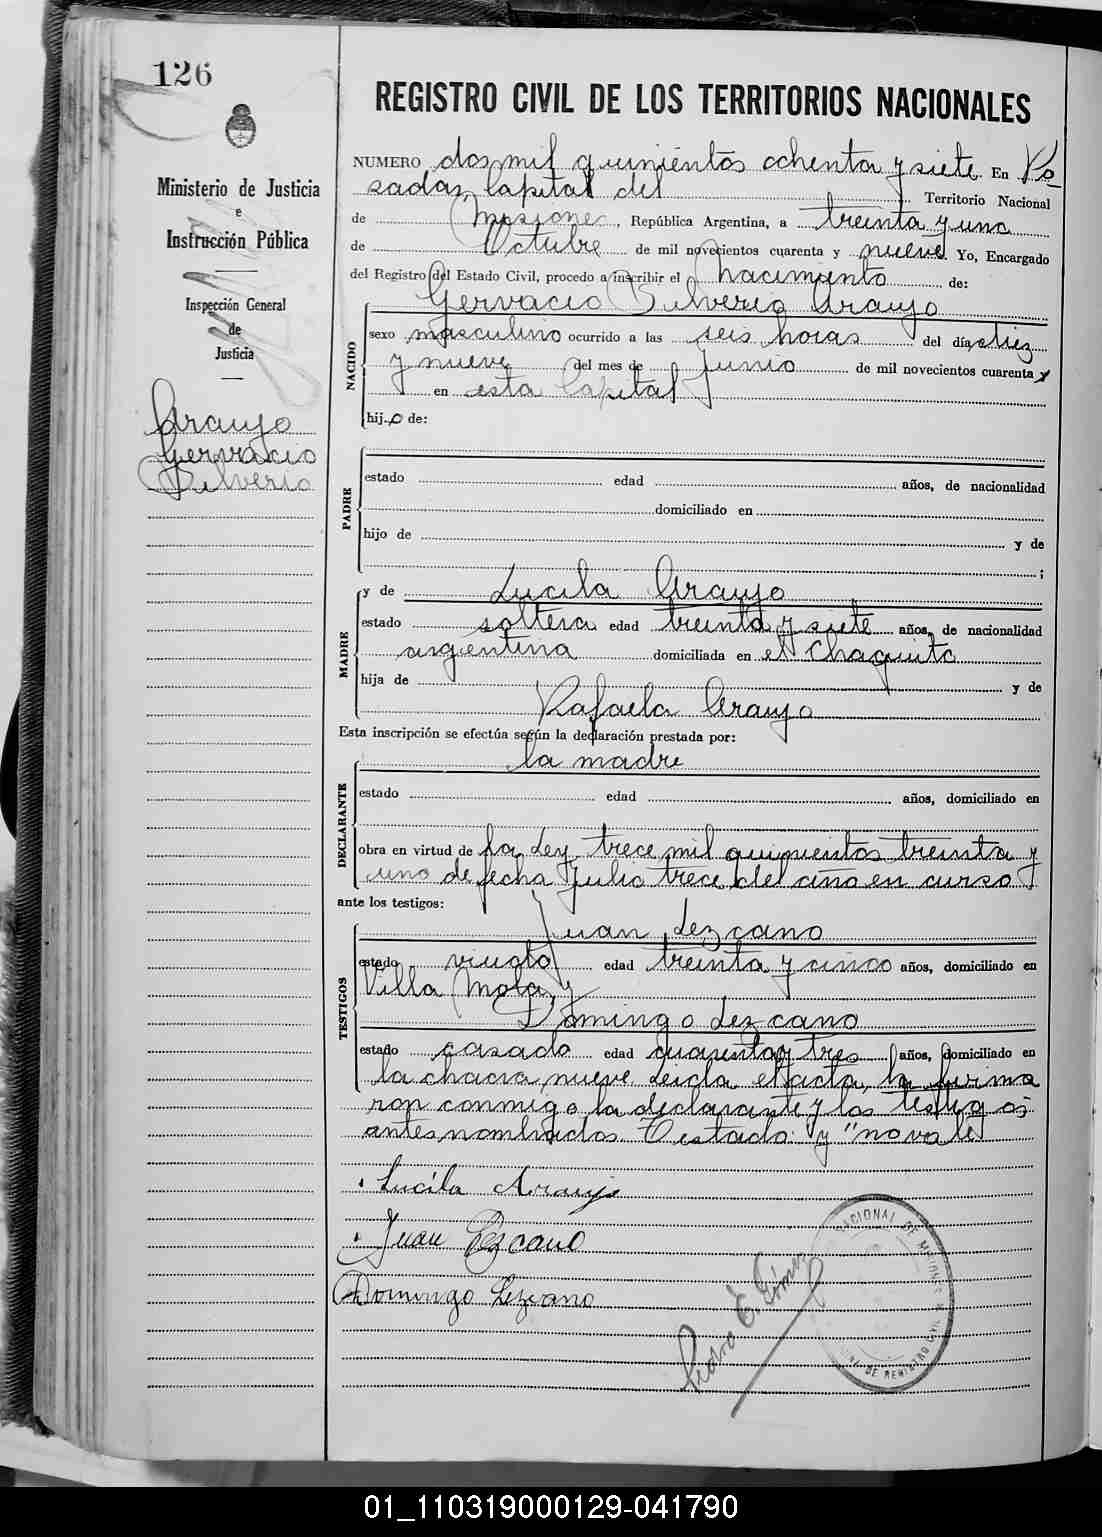 126
Ministerio de Justicia
e
Instrucción Pública
Inspección General
de
Justicia
Araujo
Gervacio
Silverio
REGISTRO CIVIL DE LOS TERRITORIOS NACIONALES
NUMERO dos mil quinientos ochenta y siete En Po
sadas, Capital del Territorio Nacional
de Misiones, República Argentina, a treinta y uno
de Octubre de mil novecientos cuarenta y nueve Yo, Encargado
del Registro del Estado Civil, procedo a inscribir el nacimiento de:
Gervacio Silverio Araujo
NACIDO
sexo masculino ocurrido a las seis horas del día diez
y nueve del mes de Junio de mil novecientos cuarenta y
en esta Capital
hijo de:
PADRE
estado edad años, de nacionalidad
domiciliado en
hijo de y de
;
y de Lucila Araujo
MADRE
estado soltera edad treinta y siete años, de nacionalidad
argentina domiciliada en el Chaquito
hija de y de
Rafaela Araujo
Esta inscripción se efectúa según la declaración prestada por:
la madre
DECLARANTE
estado edad años, domiciliado en
obra en virtud de la Ley trece mil quinientos treinta y
uno de fecha Julio trece del año en curso
ante los testigos:
Juan Lezcano
TESTIGOS
estado viudo edad treinta y cinco años, domiciliado en
Villa Mola, y
Domingo Lezcano
estado casado edad cuarenta y tres años, domiciliado en
la chacra nueve Leida el acta, la firma
ron conmigo la declarante y los testigos
antes nombrados Testado: y "no vale
Lucila Araujo
Juan Lezcano
Domingo Lezcano
Pedro E. Gómez
NACIONAL DE MISIONES
DE REGISTRO CIVIL
01_110319000129-041790